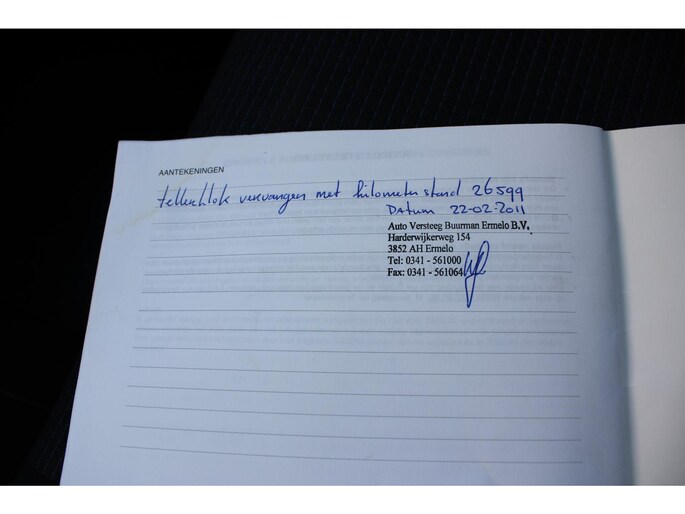 AANTEKENINGEN
tellerklok vervangen met kilometer stand 26599
DATUM 22-02-2011
Auto Versteeg Buurman Ermelo B.V.
Harderwijkerweg 154
3852 AH Ermelo
Tel: 0341 - 561000
Fax: 0341 - 561064